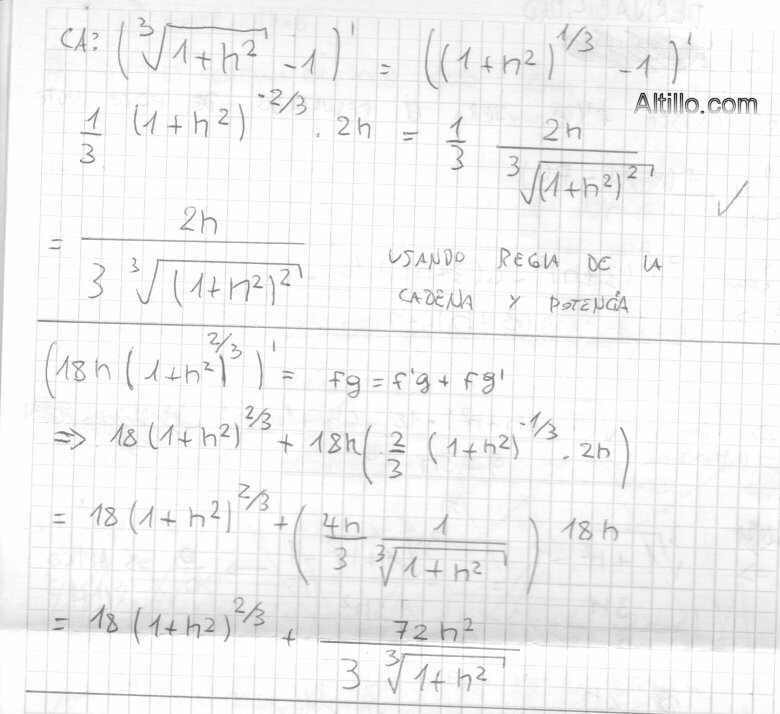 CA: (∛(1+h²) -1)' = ((1+h²)^1/3 -1)'
Altillo.com
1/3 (1+h²)^-2/3 . 2h = 1/3 2h/∛((1+h²)²) ✓
= 2h/(3 ∛((1+h²)²)) USANDO REGLA DE LA
CADENA Y POTENCIA
(18h (1+h²)^2/3)' = fg = f'g + fg'
⇒ 18(1+h²)^2/3 + 18h(2/3 (1+h²)^-1/3 . 2h)
= 18(1+h²)^2/3 + (4h/3 1/∛(1+h²)) 18h
= 18(1+h²)^2/3 + 72h²/(3 ∛(1+h²))